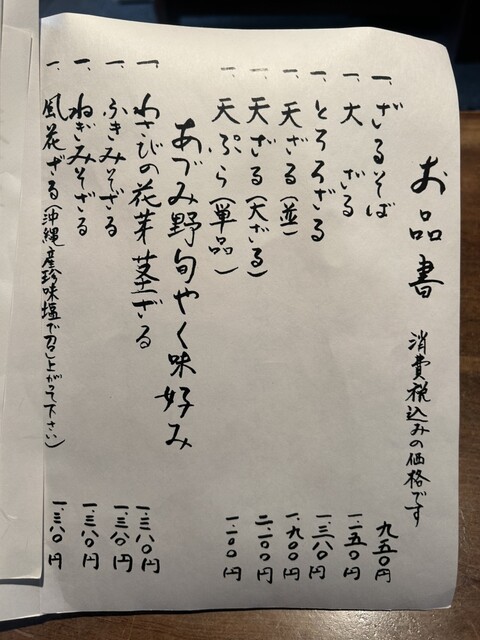 お品書 消費税込みの価格です
一、ざるそば 九五〇円
一、大ざる 一、一五〇円
一、とろろざる 一、三八〇円
一、天ざる(並) 一、九〇〇円
一、天ざる(大ざる) 二、一〇〇円
一、天ぷら(単品) 一、一〇〇円
あづみ野旬やく味好み
一、わさびの花芽茎ざる 一、三八〇円
一、ふきみそざる 一、三八〇円
一、ねぎみそざる 一、三八〇円
一、風花ざる(沖縄産珍味塩で召し上がって下さい) 一、三八〇円